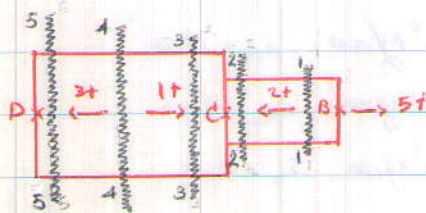 5
4
3
2
1
D 3t 1t C 2t B 5t
2
1
5
4
3